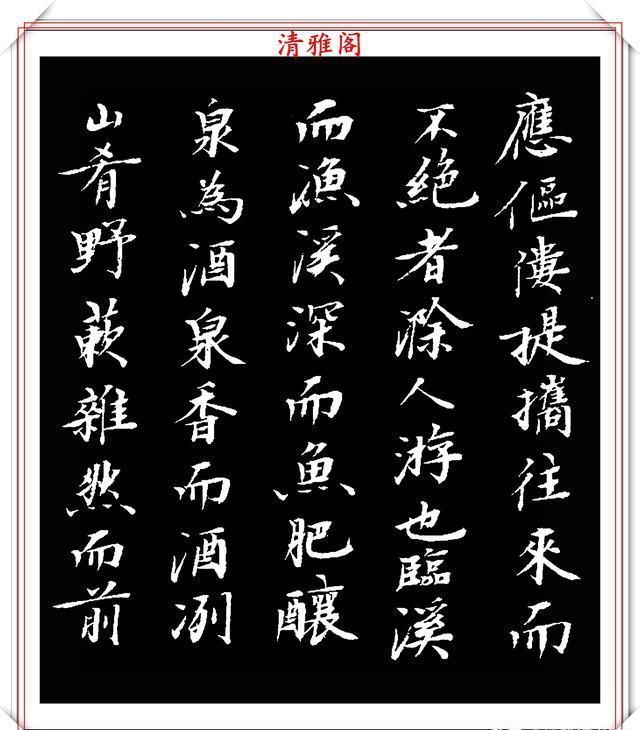 清雅阁
應傴僂提攜往來而
不絕者滁人游也臨溪
而漁溪深而魚肥釀
泉為酒泉香而酒冽
山肴野蔌雜然而前